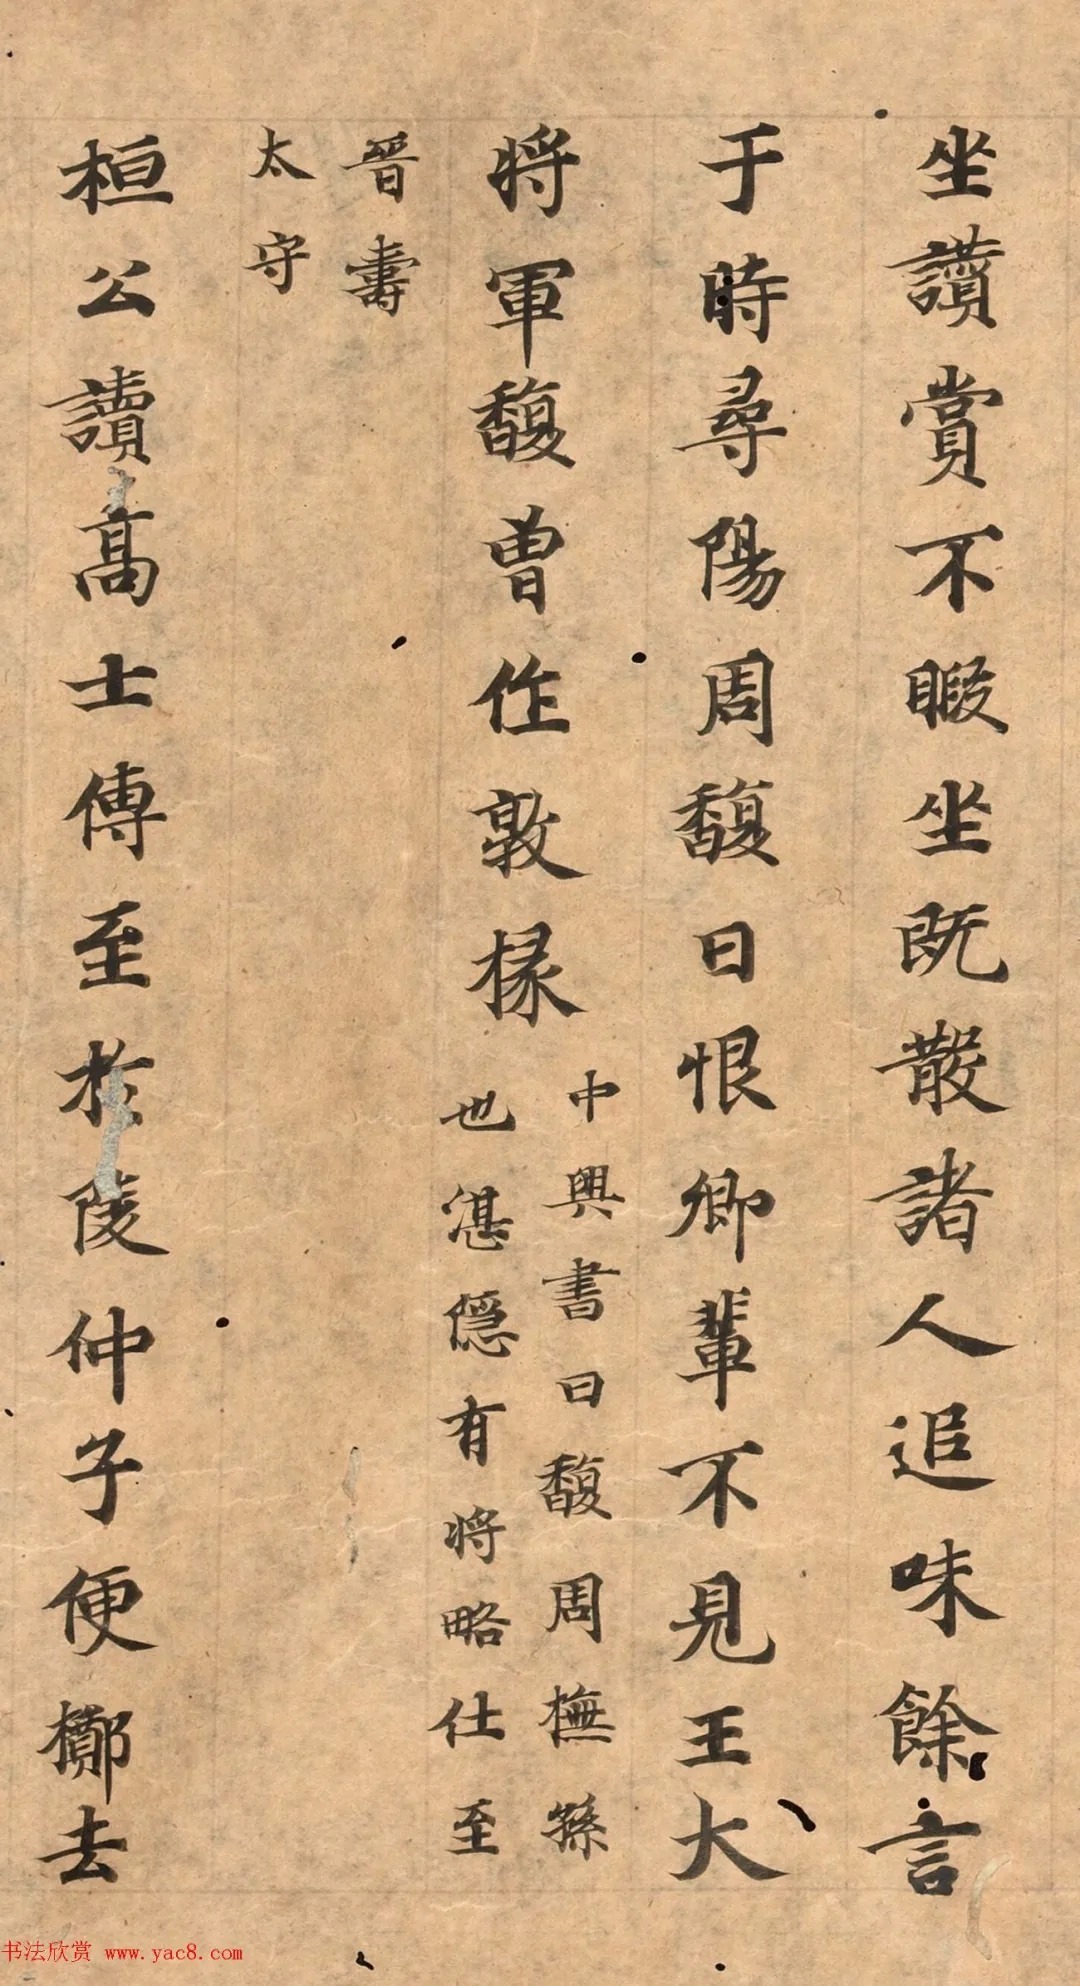 坐讃賞不暇坐既散諸人追味餘言
于時尋陽周馥曰恨卿輩不見王大
將軍馥曾作敦掾
中興書曰馥周撫孫
也湛隱有將略仕至
晉壽
太守
桓公讀高士傳至於陵仲子便擲去
书法欣赏 www.yac8.com